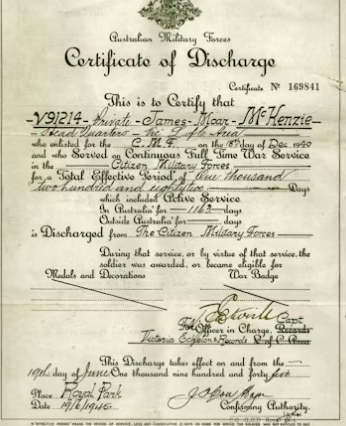 Australian Military Forces
Certificate of Discharge
Certificate No 169841
This is to Certify that
V91214 - Private - James - Moar - McKenzie -
Head Quarters - Vic L of C Area
who enlisted for the C.M.F. on the 18th day of Dec 1940
and who Served on Continuous Full Time War Service
in the Citizen Military Forces
for a Total Effective Period of One thousand
two hundred and eighty two Days
which included Active Service
In Australia for 1163 days
Outside Australia for days
is Discharged from The Citizen Military Forces
During that service, or by virtue of that service, the
soldier was awarded, or became eligible for
Medals and Decorations War Badge
Capt
Officer in Charge, Records
Victoria Echelon & Records L of C Area
This Discharge takes effect on and from the
19th day of June One thousand nine hundred and forty five
Place Royal Park
Date 19/6/1945
Confirming Authority.